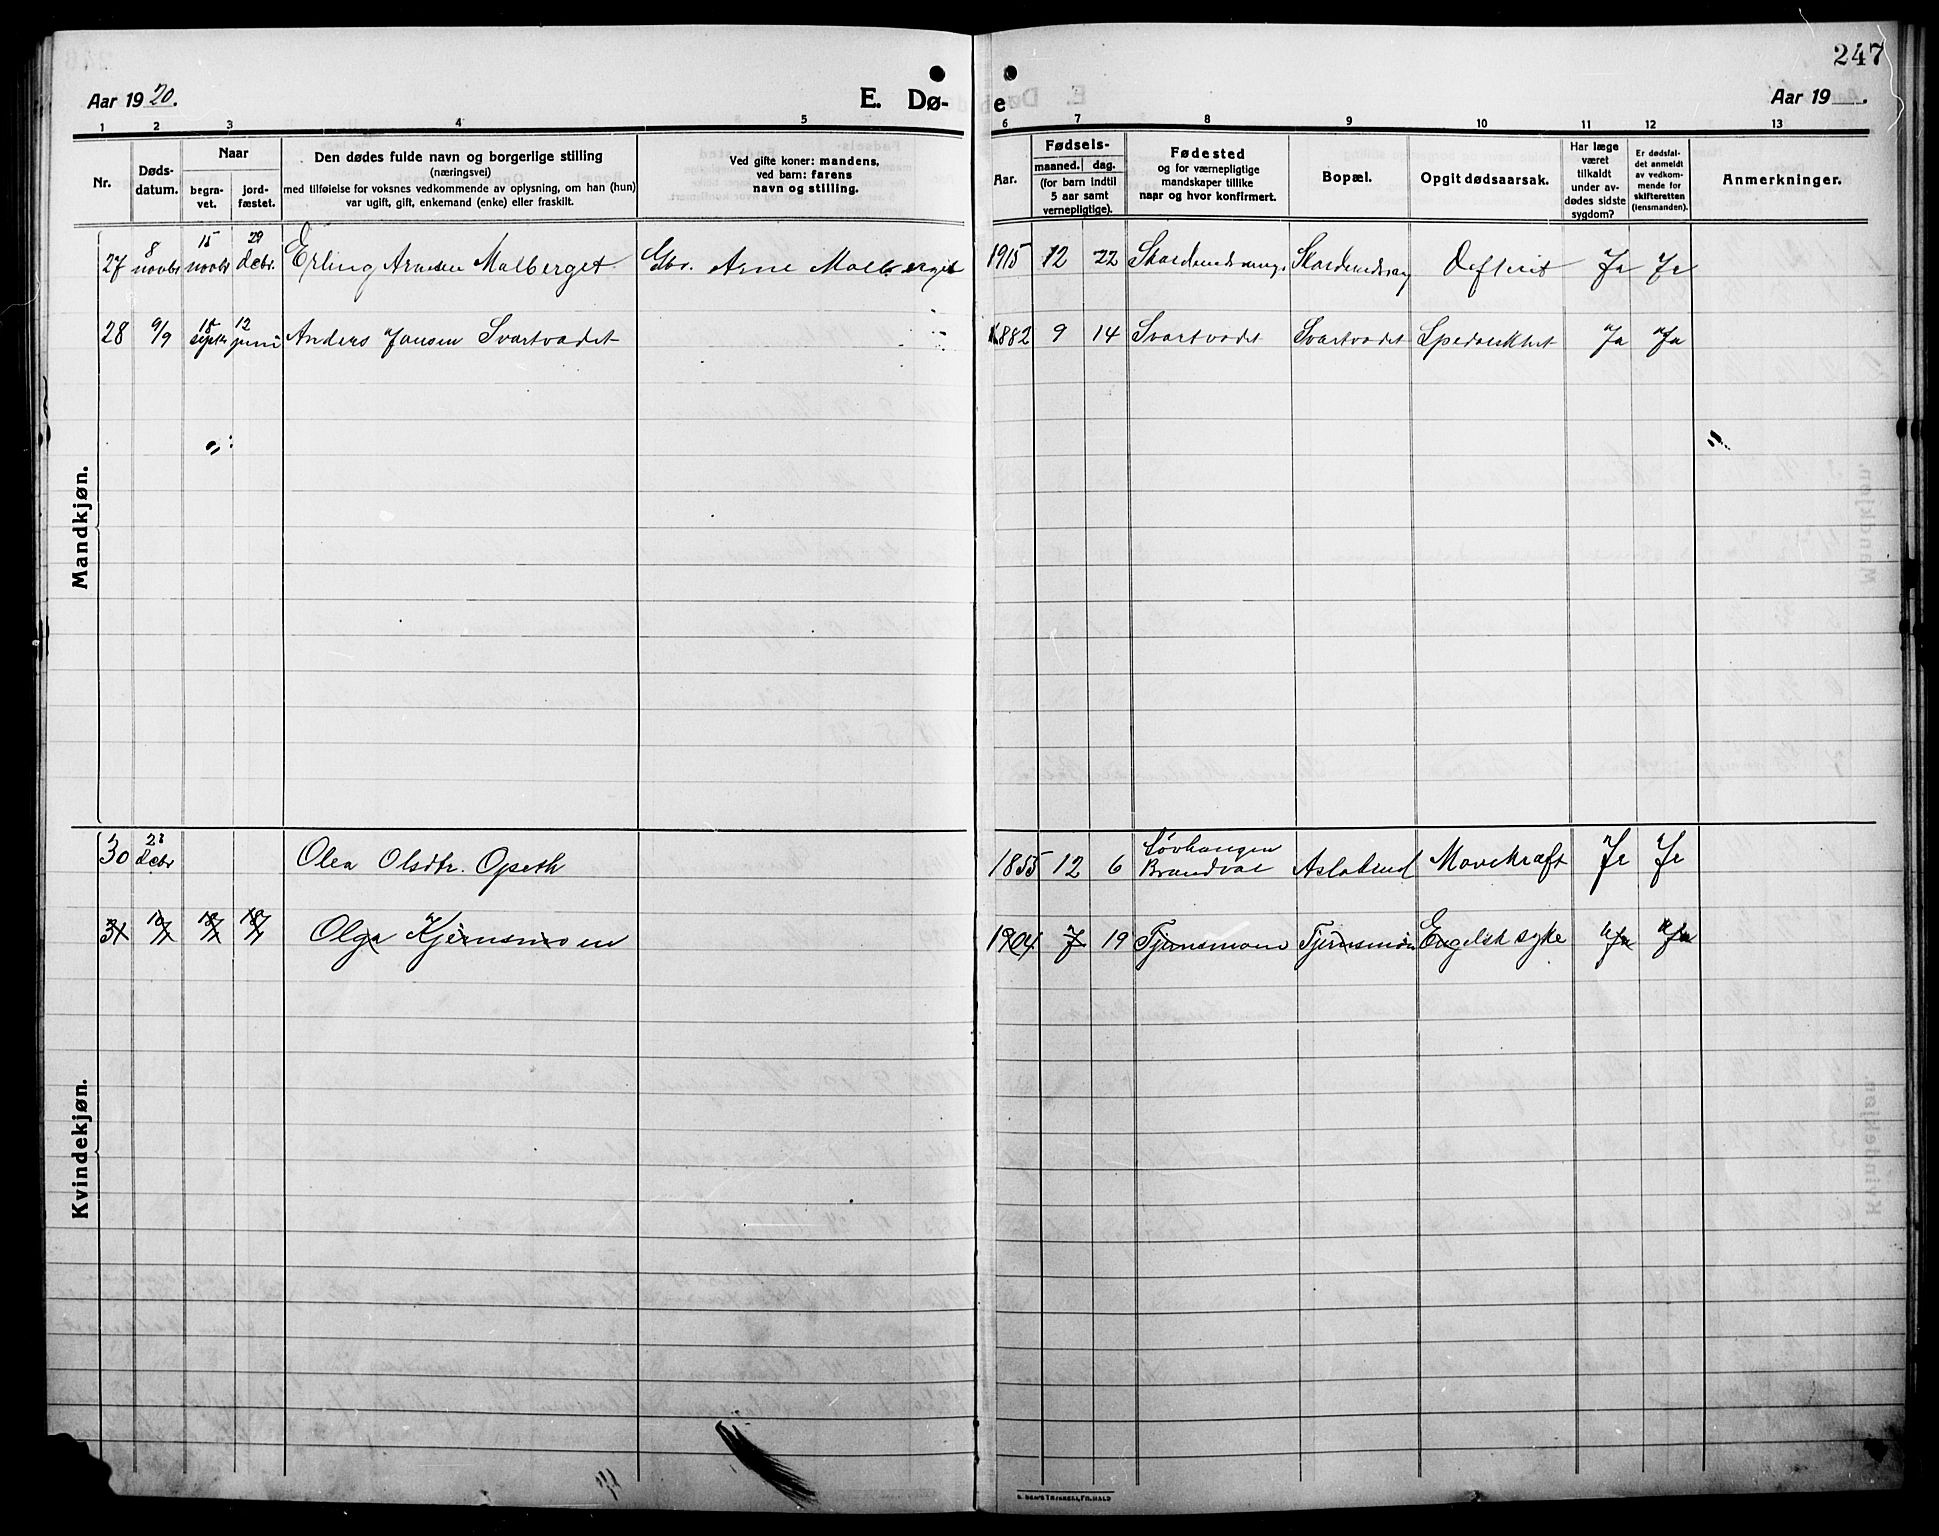 247
Aar 1920.
E. Dø-
e
Aar 19 .
1 2 3 4 5 6 7 8 9 10 11 12 13
Nr.
Døds-
datum.
Naar
begra-
vet.
jord-
fæstet.
Den dødes fulde navn og borgerlige stilling
(næringsvei)
med tilføielse for voksnes vedkommende av oplysning, om han (hun)
var ugift, gift, enkemand (enke) eller fraskilt.
Ved gifte koner: mandens,
ved barn: farens
navn og stilling.
Aar.
Fødsels-
maaned. dag.
(for barn indtil
5 aar samt
vernepligtige).
Fødested
og for værnepligtige
mandskaper tillike
naar og hvor konfirmert.
Bopæl.
Opgit dødsaarsak.
Har læge
været
tilkaldt
under av-
dødes sidste
sygdom?
Er dødsfal-
det anmeldt
av vedkom-
mende for
skifteretten
(lensmanden).
Anmerkninger.
Mandkjøn.
27 8 novbr 15 novbr 29 decbr. Erling Arnesen Malberget Gbr. Arne Malberget 1915 12 22 Ja Ja
28 9/9 15 septbr 12 juni Anders Jansen Svartvadet 1882 9 14 Svartvadet Svartvadet Spedalskhet Ja Ja
Kvindekjøn.
30 decbr Olea Olsdtr. Opseth 1855 12 6 Løvhaugen Brandval Aslakrud Ja Ja
31 Olga Kjernsmoen 1904 7 19 Tjernsmoen Tjernsmoen Engelsk syke Ja Ja